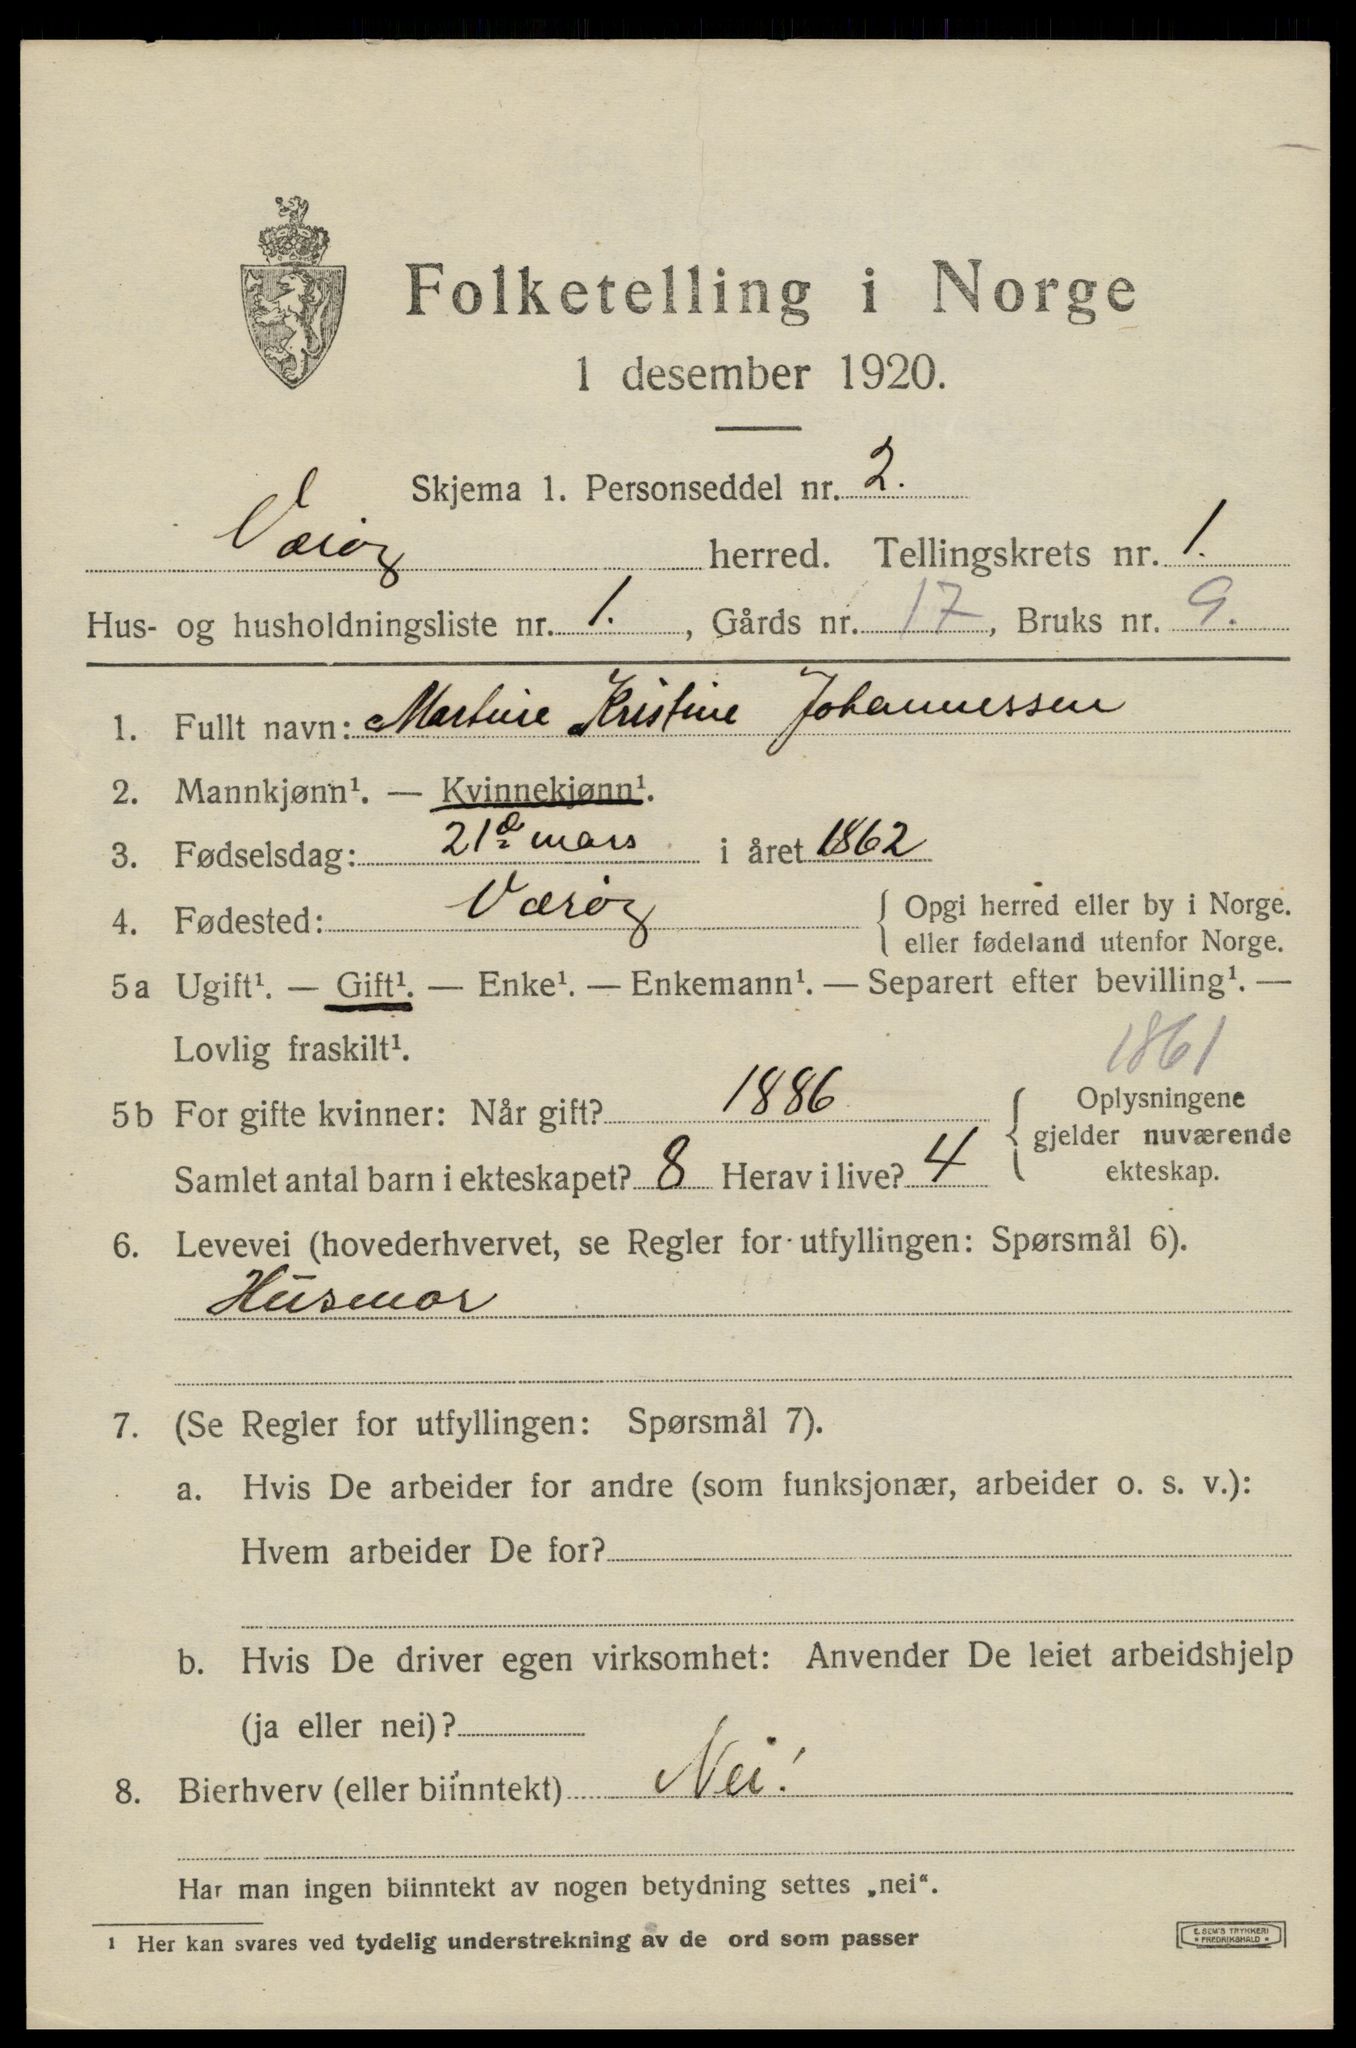 Folketelling i Norge
1 desember 1920.
Skjema 1. Personseddel nr. 2.
Værøy herred. Tellingskrets nr. 1.
Hus- og husholdningsliste nr. 1. , Gårds nr. 17, Bruks nr. 9.
1. Fullt navn: Martine Kristine Johannessen
2. Mannkjønn¹. — Kvinnekjønn¹.
3. Fødselsdag: 21de mars i året 1862
4. Fødested: Værøy { Opgi herred eller by i Norge.
eller fødeland utenfor Norge.
5a Ugift¹. — Gift¹. — Enke¹. — Enkemann¹. — Separert efter bevilling¹. —
Lovlig fraskilt¹.
1861
5b For gifte kvinner: Når gift? 1886
Samlet antal barn i ekteskapet? 8 Herav i live? 4
{ Oplysningene
gjelder nuværende
ekteskap.
6. Levevei (hovederhvervet, se Regler for utfyllingen: Spørsmål 6).
Husmor
7. (Se Regler for utfyllingen: Spørsmål 7).
a. Hvis De arbeider for andre (som funksjonær, arbeider o. s. v.):
Hvem arbeider De for?
b. Hvis De driver egen virksomhet: Anvender De leiet arbeidshjelp
(ja eller nei)?
8. Bierhverv (eller biinntekt) Nei!
Har man ingen biinntekt av nogen betydning settes „nei“.
1 Her kan svares ved tydelig understrekning av de ord som passer
E. SEM'S TRYKKERI
FREDRIKSHALD